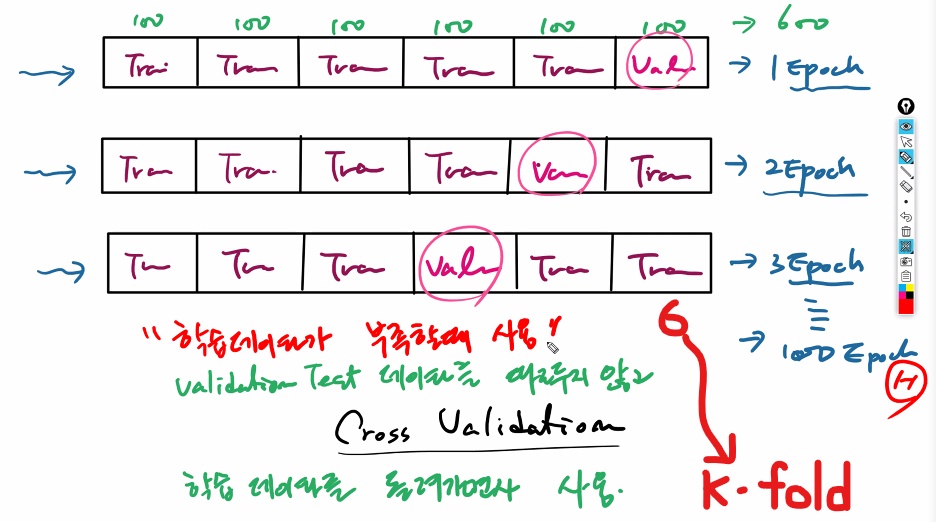 100 100 100 100 100 100 → 600
→ Trai Tran Tran Tran Tran Valn → 1 Epoch
→ Tran Trai. Tran Tran Van Tran → 2 Epoch
→ Tn Tn Tran Valn Tran Tran → 3 Epoch
"학습데이터가 부족할때 사용"
6
→ 100 Epoch
H
Validation Test 데이터를 따로두지 않고
Cross Validation
학습 데이터를 돌려가면서 사용.
K-fold